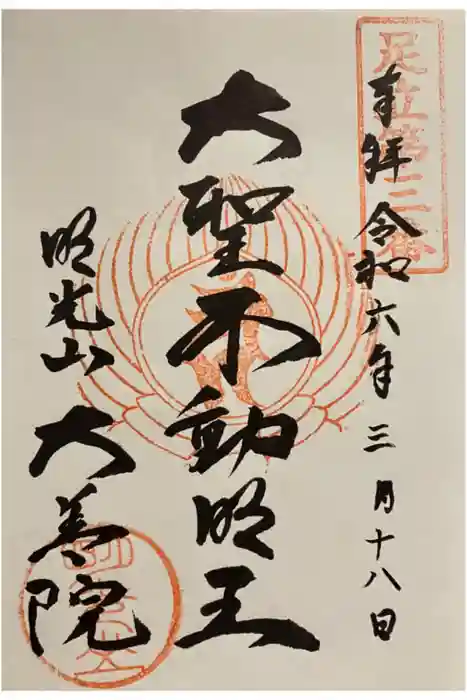 足立第三番
奉拝 令和六年三月十八日
大聖不動明王
明光山 大善院